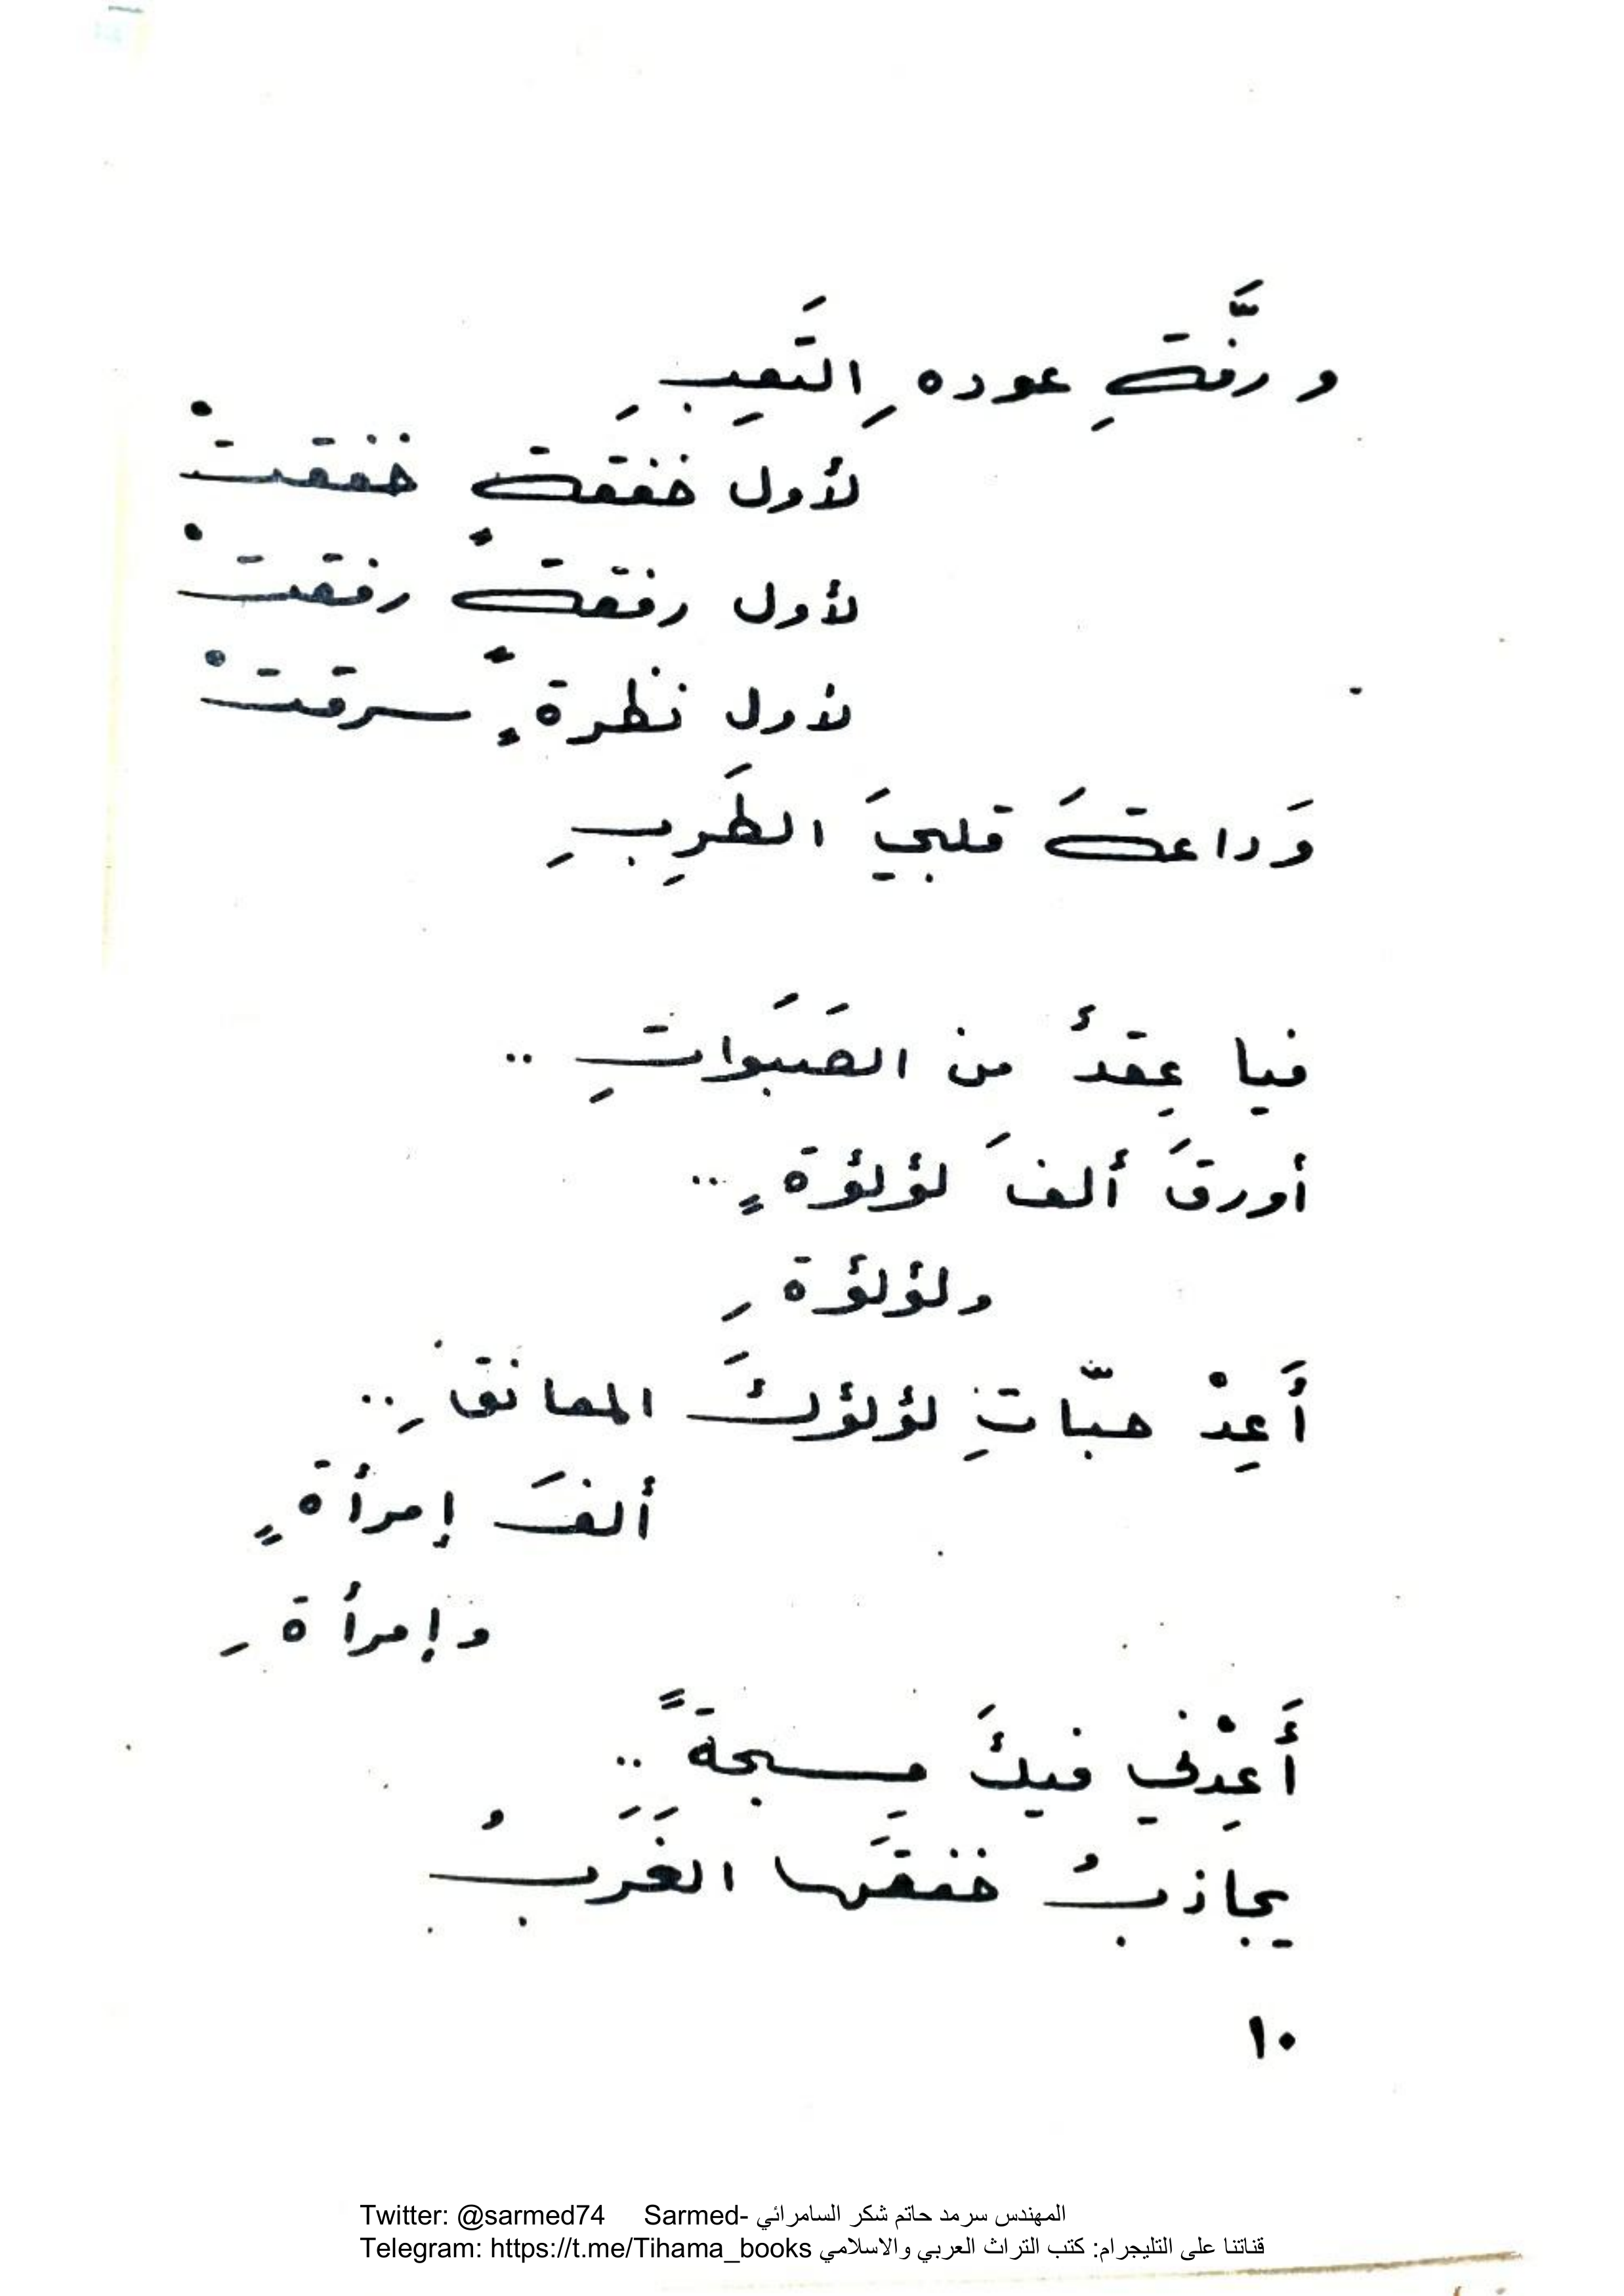 ورنَّةِ عودهِ التَّعِبِ
لأول خفقةٍ خفقتْ
لأول رفقةٍ رفقتْ
لأول نظرةٍ سرقتْ
وَداعةَ قلبيَ الطَرِبِ
فيا عِقدُ من الصَبَواتِ ..
أورقَ ألفَ لؤلؤةٍ ...
ولؤلؤةِ
أَعِدْ حبّاتِ لؤلؤكَ المعانقِ ..
ألفَ إمرأةٍ
وإمرأةِ
أَعِدْني فيكَ مِسبحةً ..
يجاذبُ خفقَها الغَرَبُ
١٠
Twitter: @sarmed74 Sarmed- المهندس سرمد حاتم شكر السامرائي
Telegram: https://t.me/Tihama_books قناتنا على التليجرام: كتب التراث العربي والاسلامي